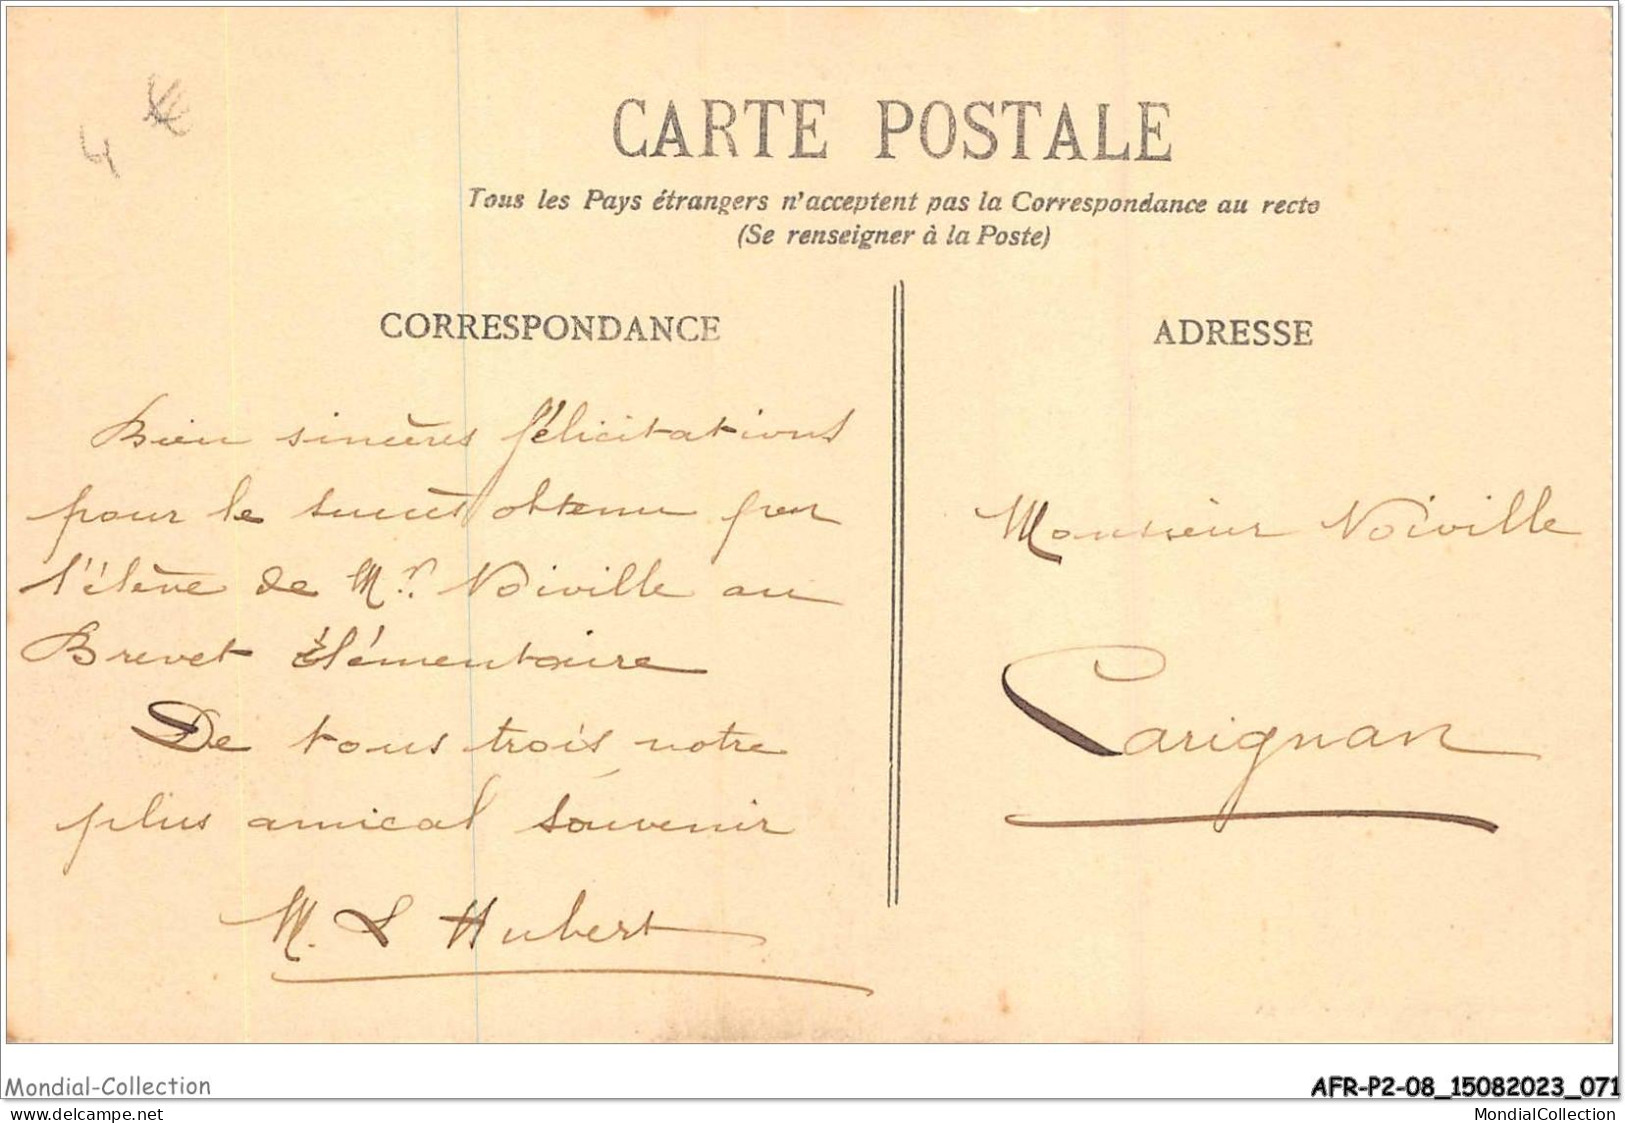 4
CARTE POSTALE
Tous les Pays étrangers n'acceptent pas la Correspondance au recto
(Se renseigner à la Poste)
CORRESPONDANCE
Bien sincères félicitations
pour le succès obtenu par
l'élève de Mr. Noiville au
Brevet élémentaire
De tous trois notre
plus amical souvenir
M. L Hubert
ADRESSE
Monsieur Noiville
Carignan
Mondial-Collection
AFR-P2-08_15082023_071
www.delcampe.net
MondialCollection